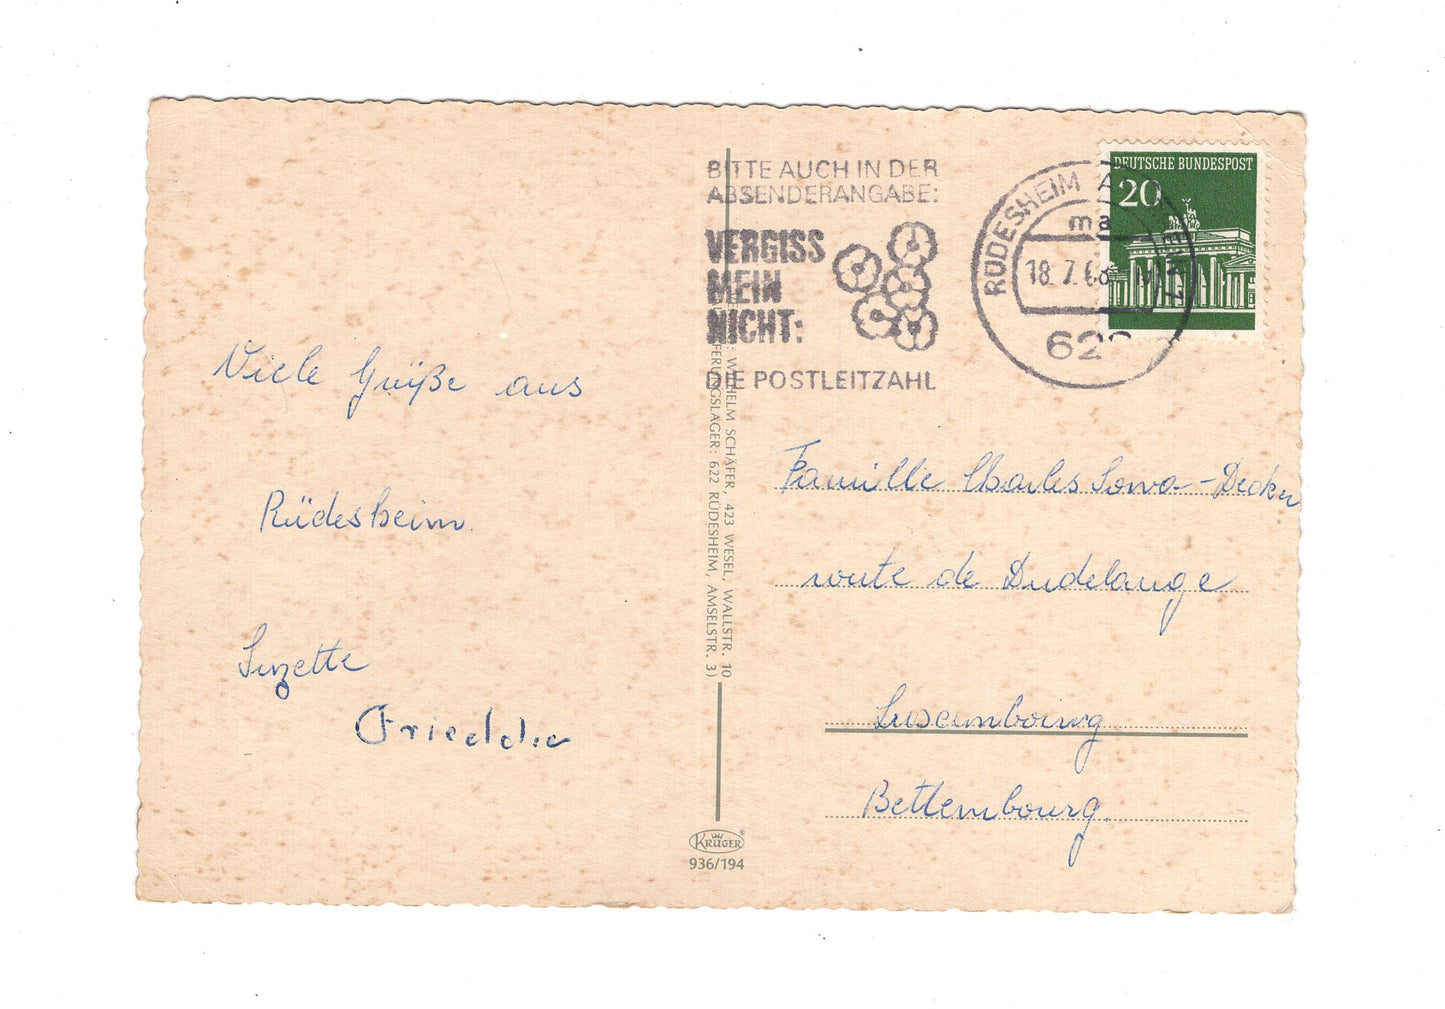 Viele Grüße aus
Rüdesheim.
Suzette
BITTE AUCH IN DER
ABSENDERANGABE:
VERGISS
MEIN
NICHT:
DIE POSTLEITZAHL
RÜDESHEIM A
ma
18.7.68
622
DEUTSCHE BUNDESPOST
20
WILHELM SCHÄFER, 423 WESEL, WALLSTR. 10
FERUNGSLAGER: 622 RÜDESHEIM, AMSELSTR. 3)
KRÜGER®
936/194
Famille Charles Sowa-Decker
route de Dudelange
Luxembourg
Bettembourg.